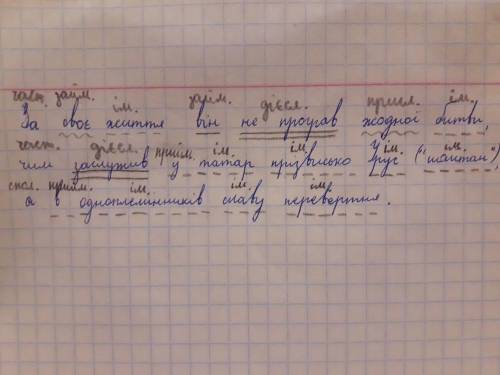 част. займ. ім. займ. дієсл. присл. ім.
За своє життя він не програв жодної битви,
част. дієсл. прийм. ім. ім. ім. ім.
чим заслужив у татар прізвисько Урус ("шайтан"),
спол. прийм. ім. ім. ім.
а в одноплемінників славу перевертня.